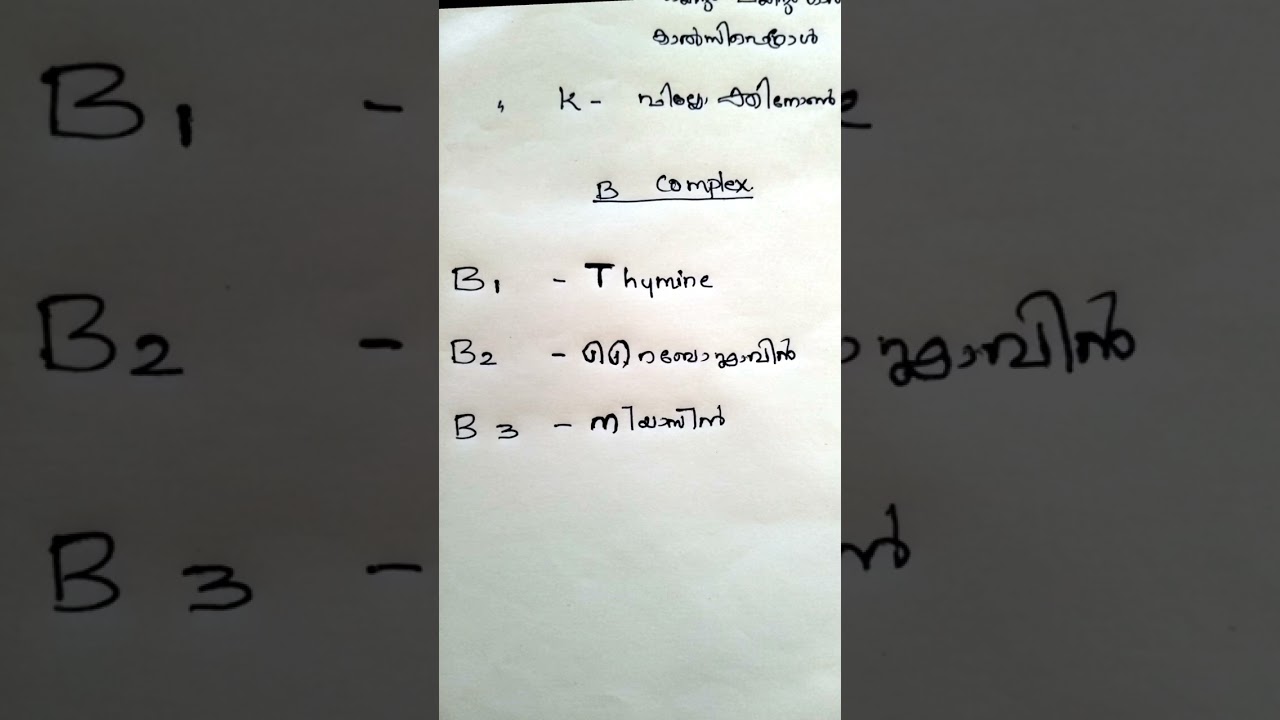 കാൽസിഫെറോൾ
" K - ഫില്ലോ ക്വിനോൺ
B Complex
B1 - Thymine
B2 - റൈബോഫ്ലാവിൻ
B3 - നിയാസിൻ